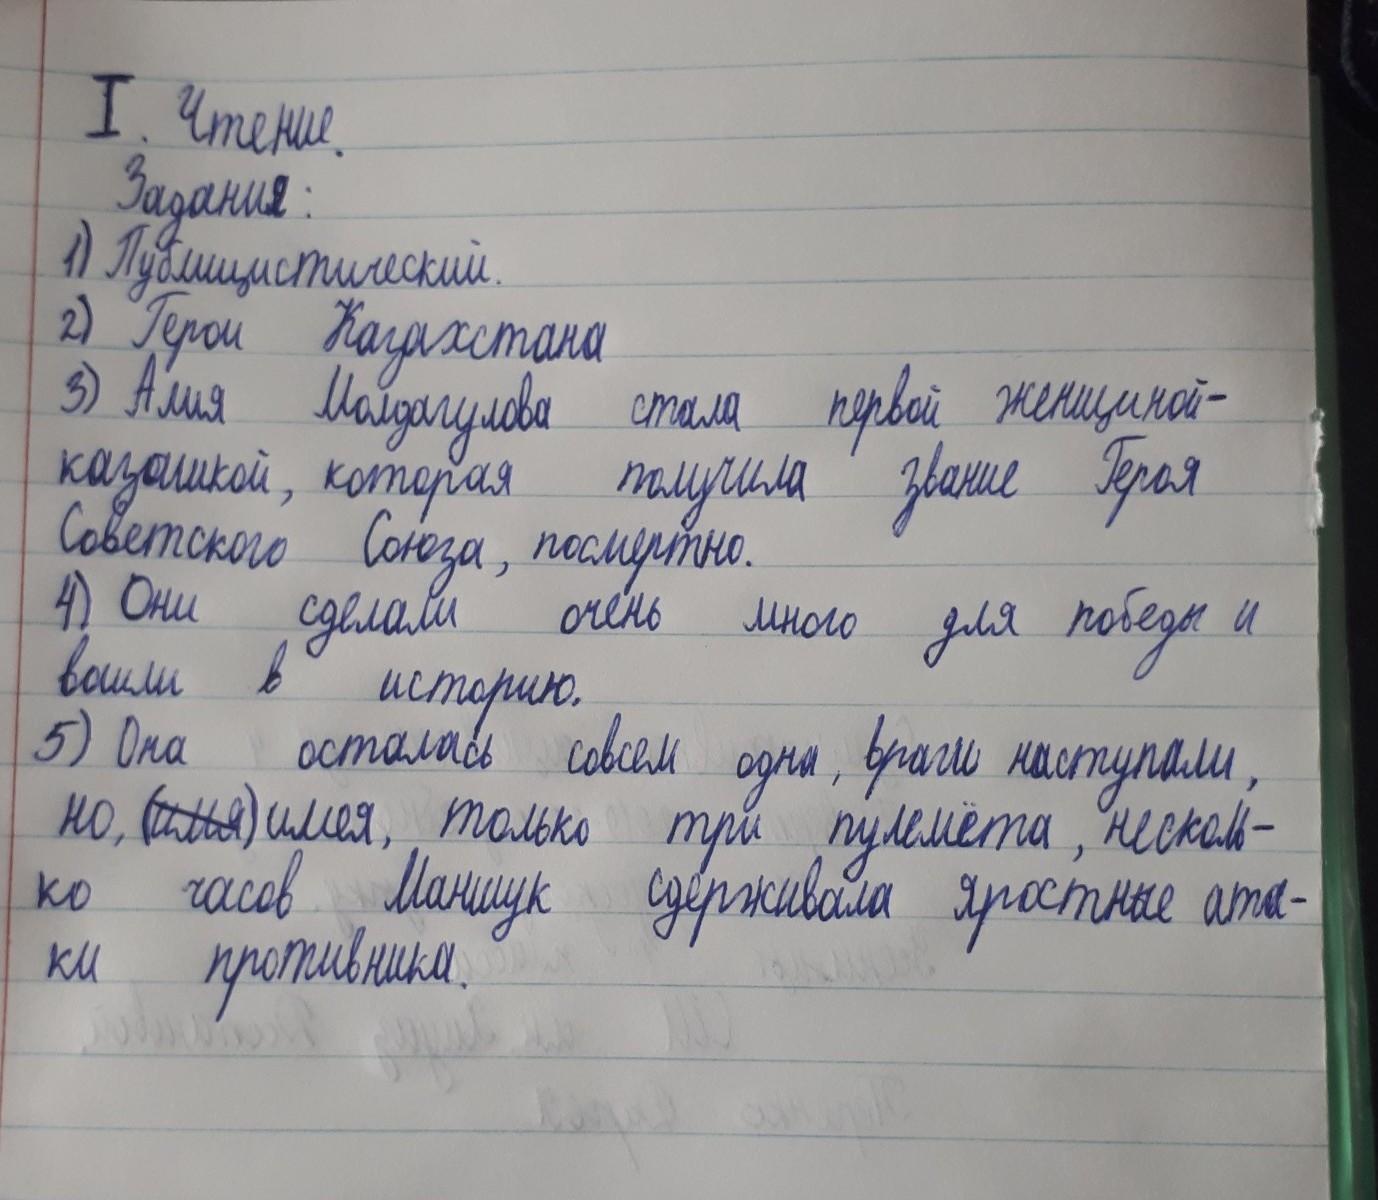 I. Чтение.
Задания:
1) Публицистический.
2) Герои Казахстана
3) Алия Молдагулова стала первой женщиной-
казашкой, которая получила звание Героя
Советского Союза, посмертно.
4) Они сделали очень много для победы и
вошли в историю.
5) Она осталась совсем одна, враги наступали,
но, (имия) имея, только три пулемёта, несколь-
ко часов Маншук сдерживала яростные ата-
ки противника.